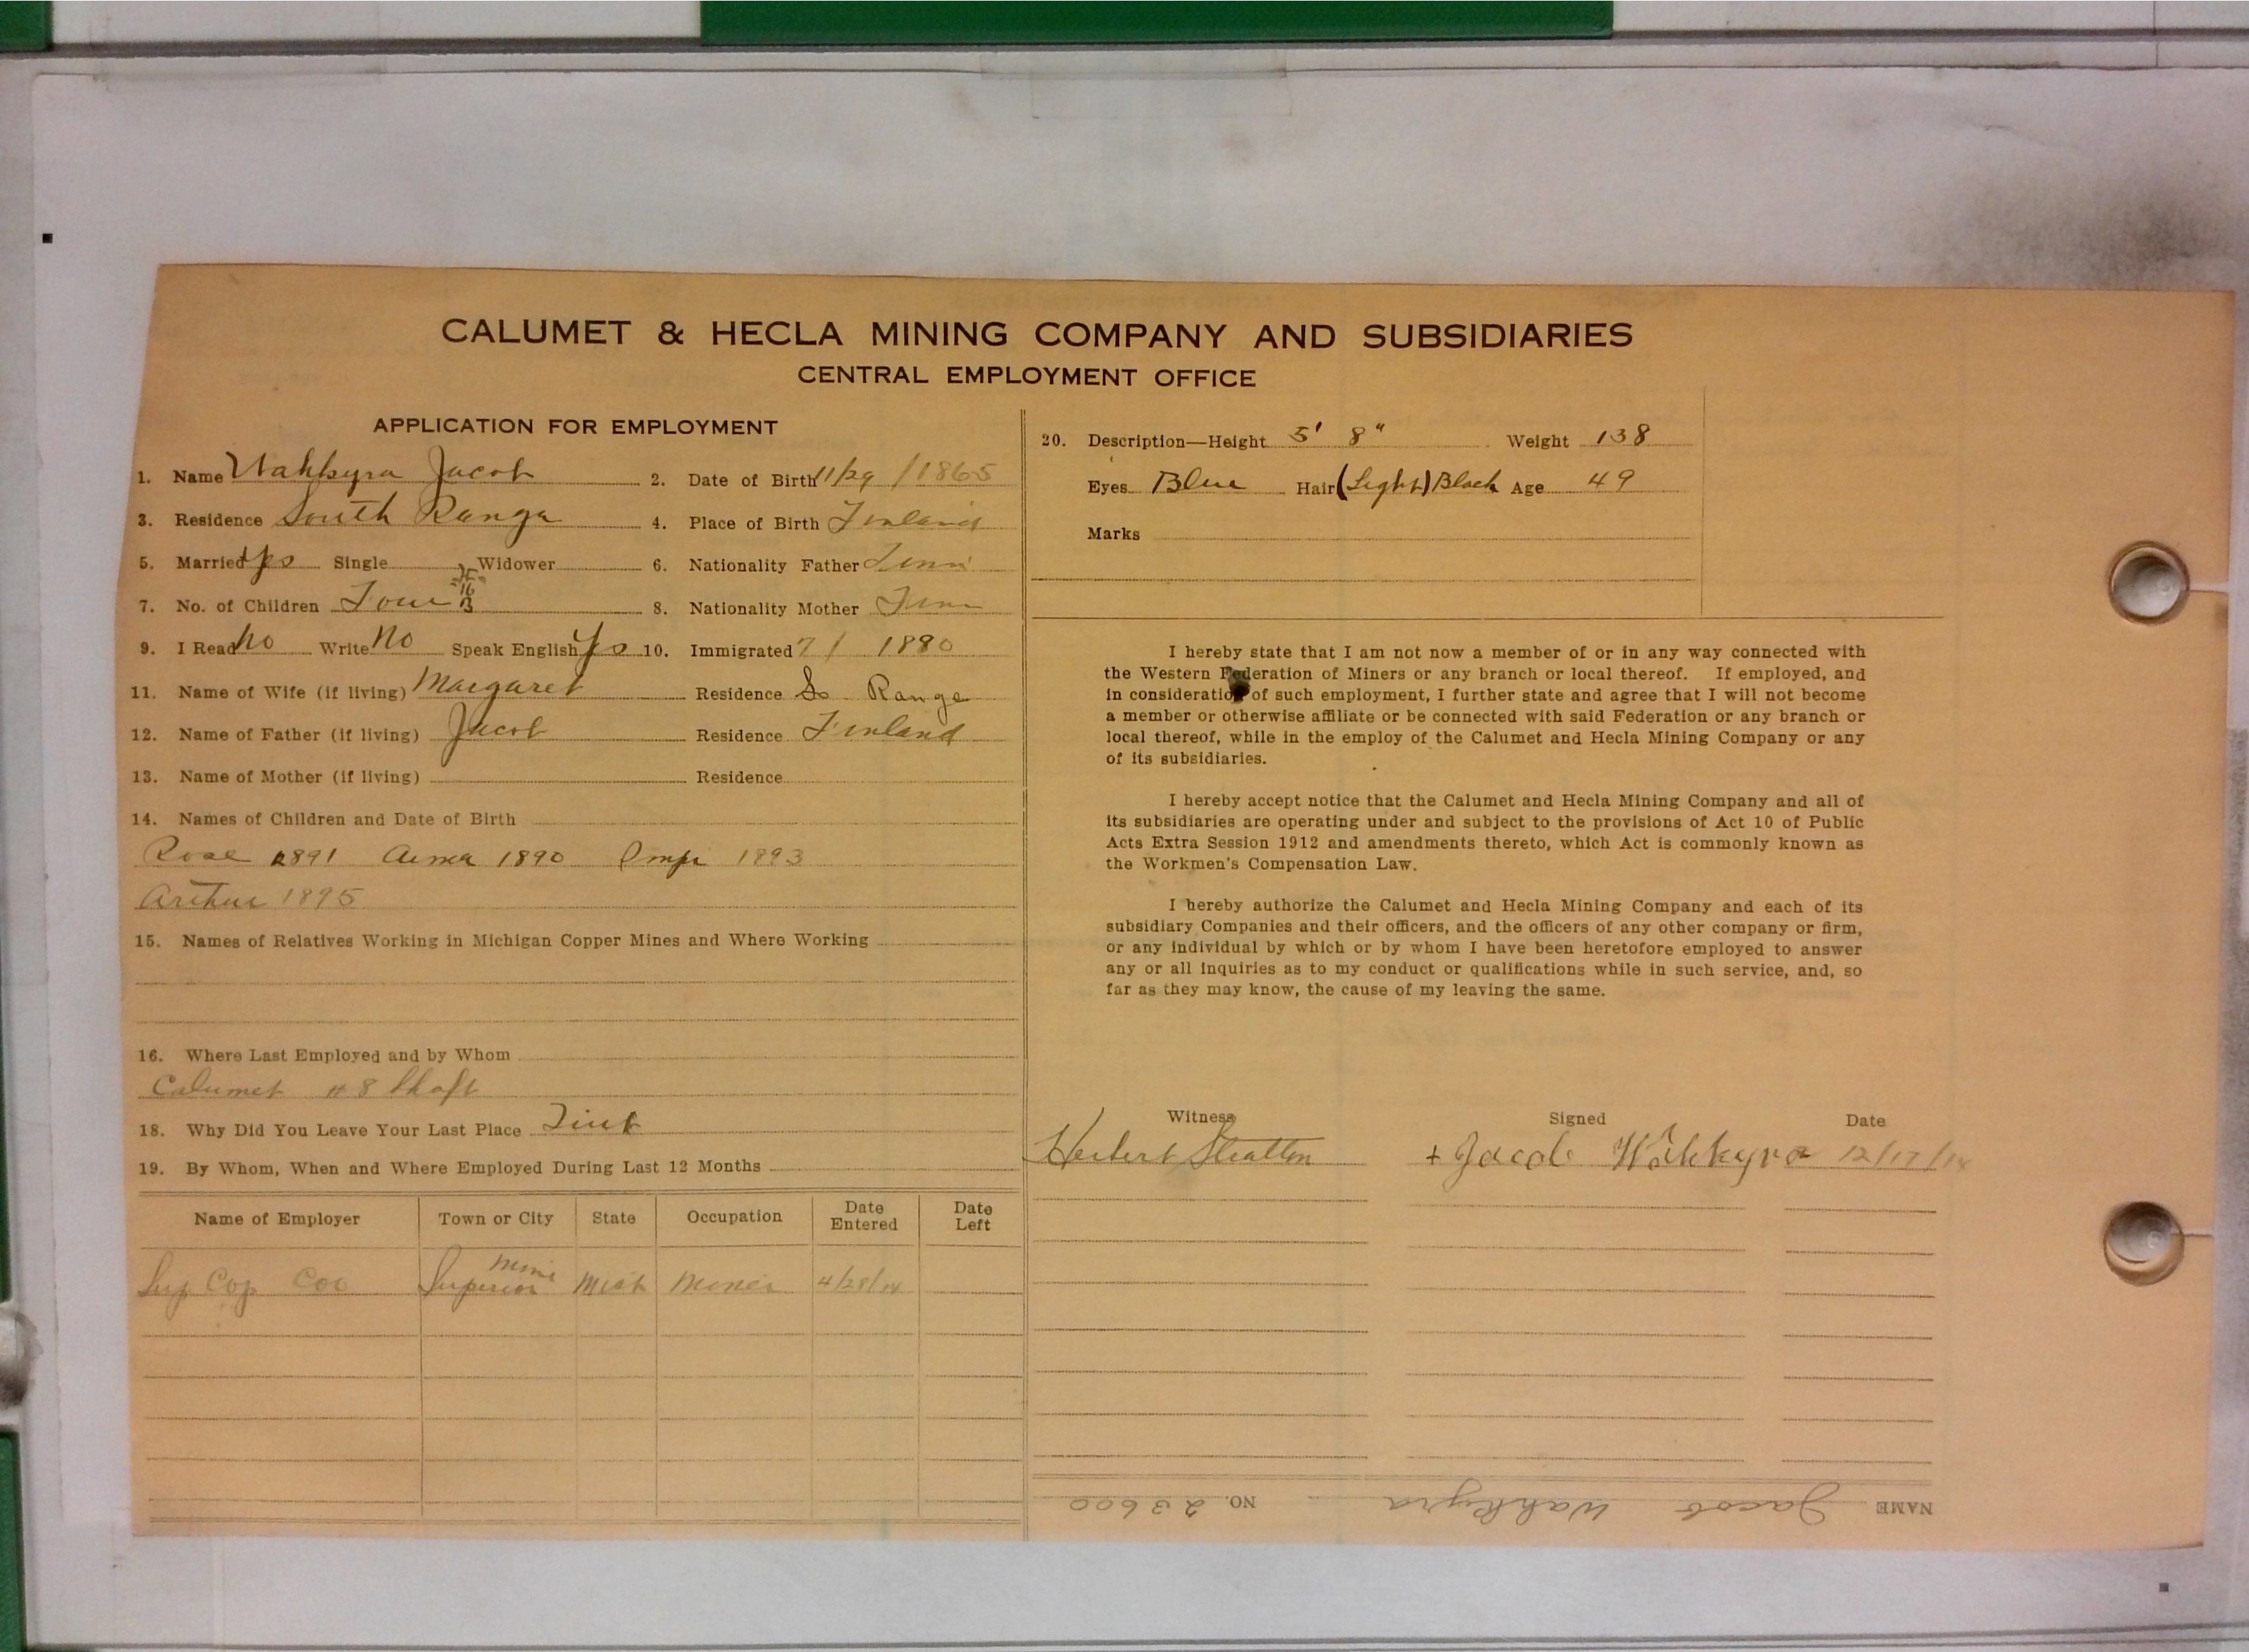 CALUMET & HECLA MINING COMPANY AND SUBSIDIARIES
CENTRAL EMPLOYMENT OFFICE
APPLICATION FOR EMPLOYMENT
1. Name Wahkyra Jacob 2. Date of Birth 11/29/1865
3. Residence South Range 4. Place of Birth Finland
5. Married Yes Single Widower 6. Nationality Father Finn
7. No. of Children Four 8. Nationality Mother Finn
9. I Read No Write No Speak English Yes 10. Immigrated 7/ 1880
11. Name of Wife (if living) Margaret Residence So Range
12. Name of Father (if living) Jacob Residence Finland
13. Name of Mother (if living) Residence
14. Names of Children and Date of Birth
Rose 1891 1890 1893
Arthur 1895
15. Names of Relatives Working in Michigan Copper Mines and Where Working
16. Where Last Employed and by Whom
Calumet #8 Shaft
18. Why Did You Leave Your Last Place
19. By Whom, When and Where Employed During Last 12 Months
Name of Employer Town or City State Occupation Date Entered Date Left
Sup Cop Coo Superior Mine Mich Miner 4/28/14
20. Description—Height 5' 8" Weight 138
Eyes Blue Hair (Light) Black Age 49
Marks
I hereby state that I am not now a member of or in any way connected with
the Western Federation of Miners or any branch or local thereof. If employed, and
in consideration of such employment, I further state and agree that I will not become
a member or otherwise affiliate or be connected with said Federation or any branch or
local thereof, while in the employ of the Calumet and Hecla Mining Company or any
of its subsidiaries.
I hereby accept notice that the Calumet and Hecla Mining Company and all of
its subsidiaries are operating under and subject to the provisions of Act 10 of Public
Acts Extra Session 1912 and amendments thereto, which Act is commonly known as
the Workmen's Compensation Law.
I hereby authorize the Calumet and Hecla Mining Company and each of its
subsidiary Companies and their officers, and the officers of any other company or firm,
or any individual by which or by whom I have been heretofore employed to answer
any or all inquiries as to my conduct or qualifications while in such service, and, so
far as they may know, the cause of my leaving the same.
Witness Signed Date
Herbert Stratton + Jacob Wahkyra 12/17/14
NAME Jacob Wahkyra NO. 23600